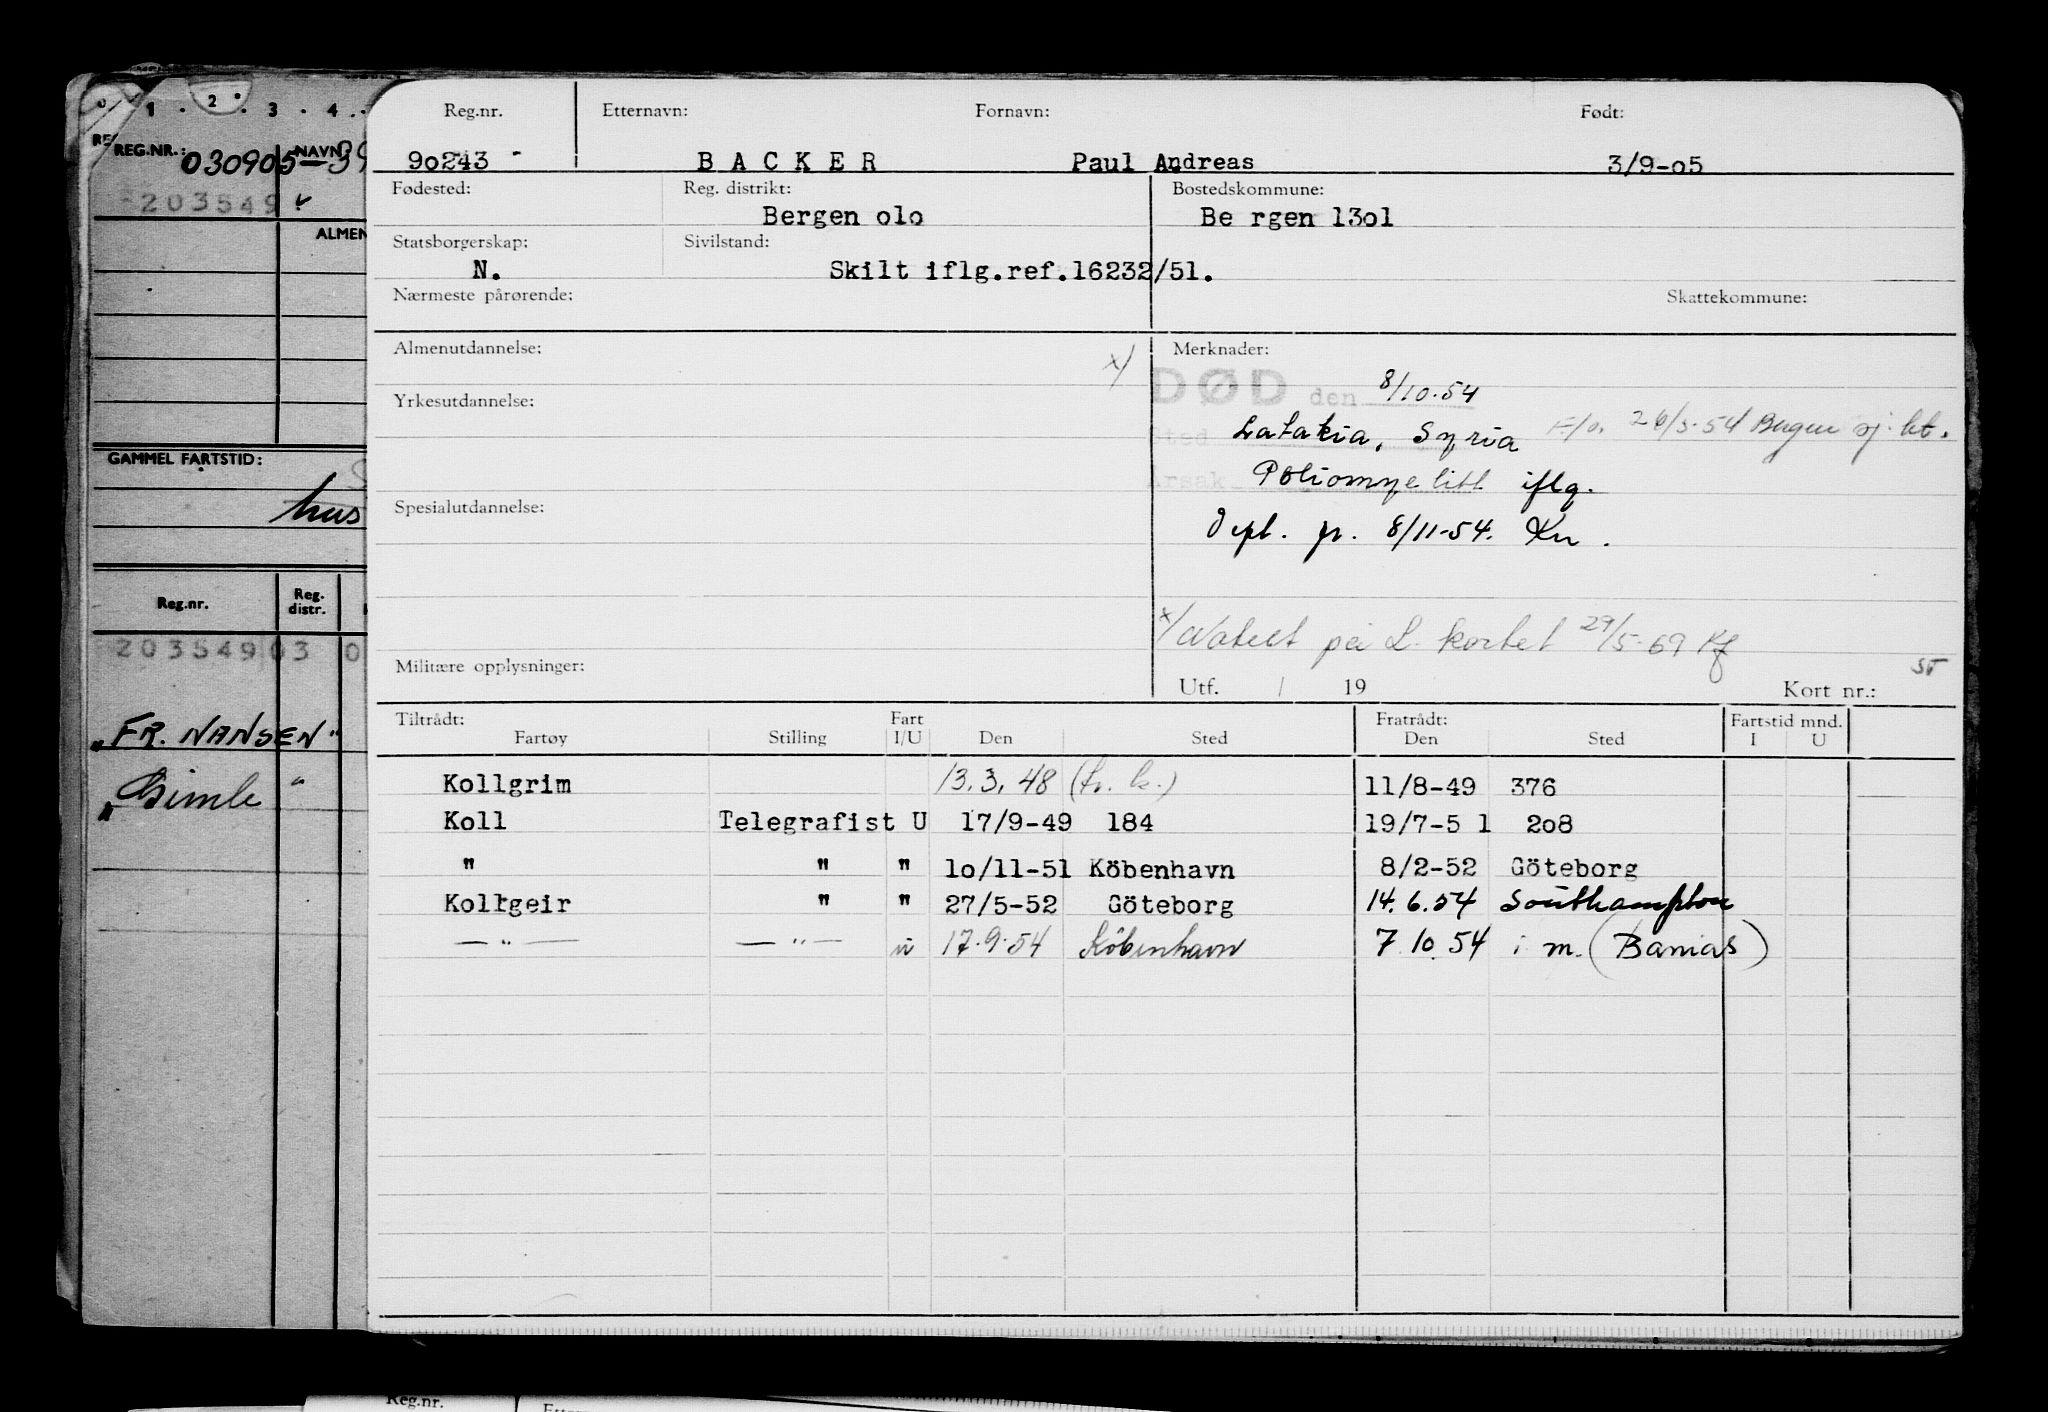 1 . 2 . 3 . 4 . .
REG.NR.: 030905-39 NAVN
203549
ALMEN
GAMMEL FARTSTID:
hus
Reg.nr. Reg. distr.
203549 03 0
"FR. NANSEN"
"Gimle"
Reg.nr. Etternavn: Fornavn: Født:
9o243 - B A C K E R Paul Andreas 3/9-o5
Fødested: Reg. distrikt: Bostedskommune:
Bergen olo Be rgen 13o1
Statsborgerskap: Sivilstand:
N. Skilt iflg.ref.16232/51.
Nærmeste pårørende: Skattekommune:
Almenutdannelse: x/ Merknader:
DØD den 8/10.54
Yrkesutdannelse:
Sted Latakia, Syria F/o. 26/3-54 Bergen sj.kt.
Årsak Poliomyelitt iflg.
Spesialutdannelse:
Dept. pr. 8/11-54. Kn.
x/ Notert på L. kortet 29/5-69 Kf
Militære opplysninger: ST
Utf. / 19 Kort nr.:
Tiltrådt: Fart Fratrådt: Fartstid mnd.
Fartøy Stilling I/U Den Sted Den Sted I U
Kollgrim 13.3.48 (tr. k.) 11/8-49 376
Koll Telegrafist U 17/9-49 184 19/7-5 1 2o8
" " " 1o/11-51 Köbenhavn 8/2-52 Göteborg
Kollgeir " " 27/5-52 Göteborg 14.6.54 Southampton
— " — — " — u 17.9.54 København 7.10.54 i m. (Banias)
Reg.nr.